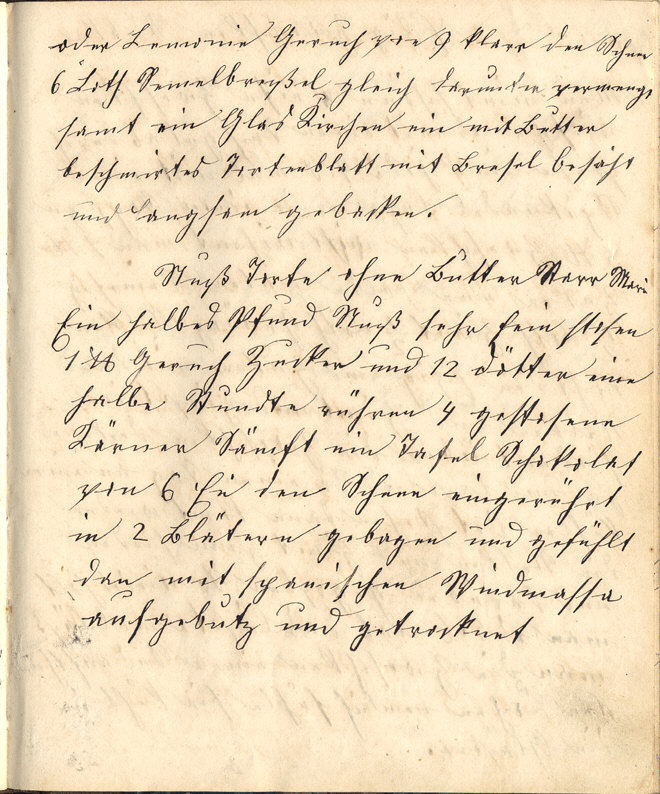 oder Lemonie Geruch von 9 klarr den Schnee
6 Loth Semelbreßel gleich darunter vermengt
samt ein Glas Kirchen ein mit Butter
beschmirtes Tortenblatt mit Bresel besäht
und langsam gebacken.
Nuß Torte ohne Butter Starr Marie
Ein halbes Pfund Nuß sehr fein stosen
1 ℔ Geruch Zucker und 12 Dötter eine
halbe Stundte rühren 4 gestosene
Körner Sämft ein Tafel Schokolat
von 6 Ei den Schnee eingerührt
in 2 Blätern gebagen und gefühlt
dan mit spanischen Windmassa
aufgebutz und getrocknet